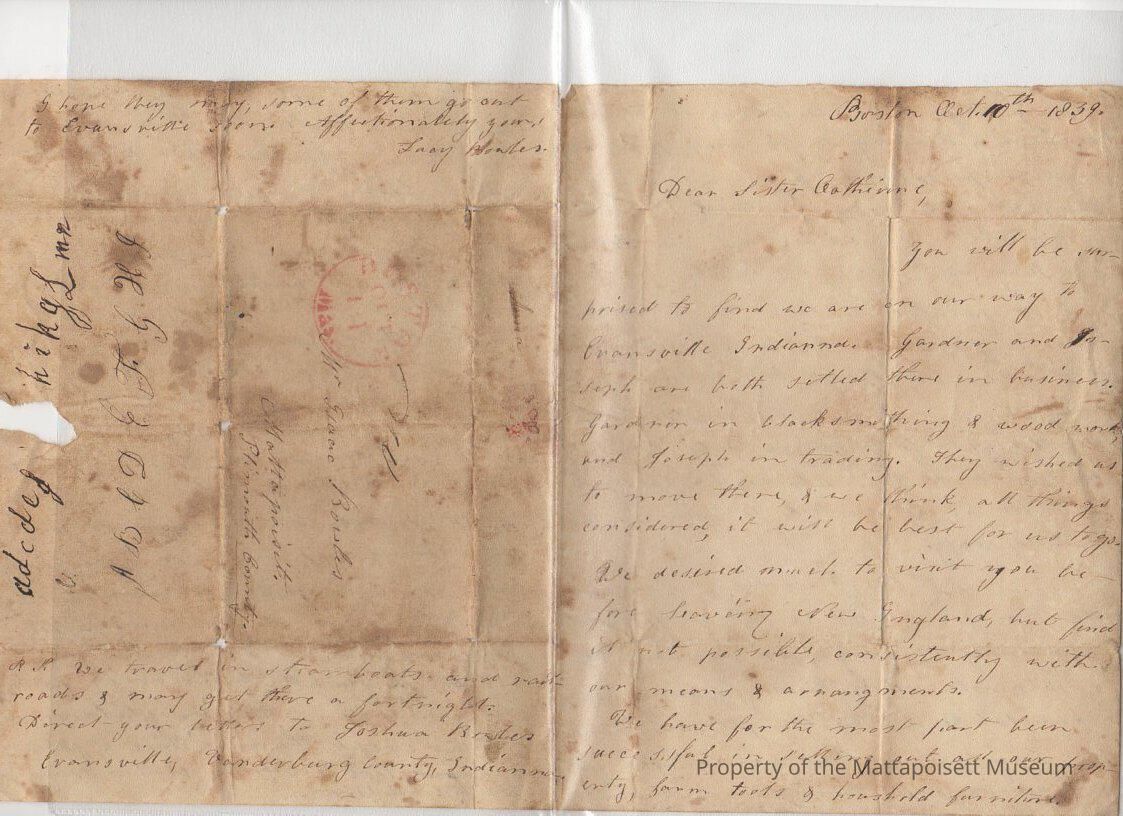 I hope they may, some of them go out
to Evansville soon. Affectionately yours
Lucy Bowles.
adcdeg hikgLmn
A B C D E F G H I
Mr Isaac Bowles
Mattapoisett,
Plimouth County.
P.S. We travel in steamboats and rail
roads & may get there a fortnight.
Direct your letters to Joshua Bowles
Evansville, Vanderburg County, Indianna
Boston Oct. 10th 1839.
Dear Sister Catherine,
You will be sur-
prised to find we are on our way to
Evansville Indianna. Gardner and Jo-
seph are both setled there in business.
Gardner in blacksmithing & wood work,
and Joseph in trading. They wished us
to move there, & we think, all things
considered, it will be best for us to go.
We desired much to visit you be-
fore leaving New England, but find
it not possible, consistently with
our means & arrangments.
We have for the most part been
successful in selling our prop-
erty, farm tools & household furniture.
Property of the Mattapoisett Museum